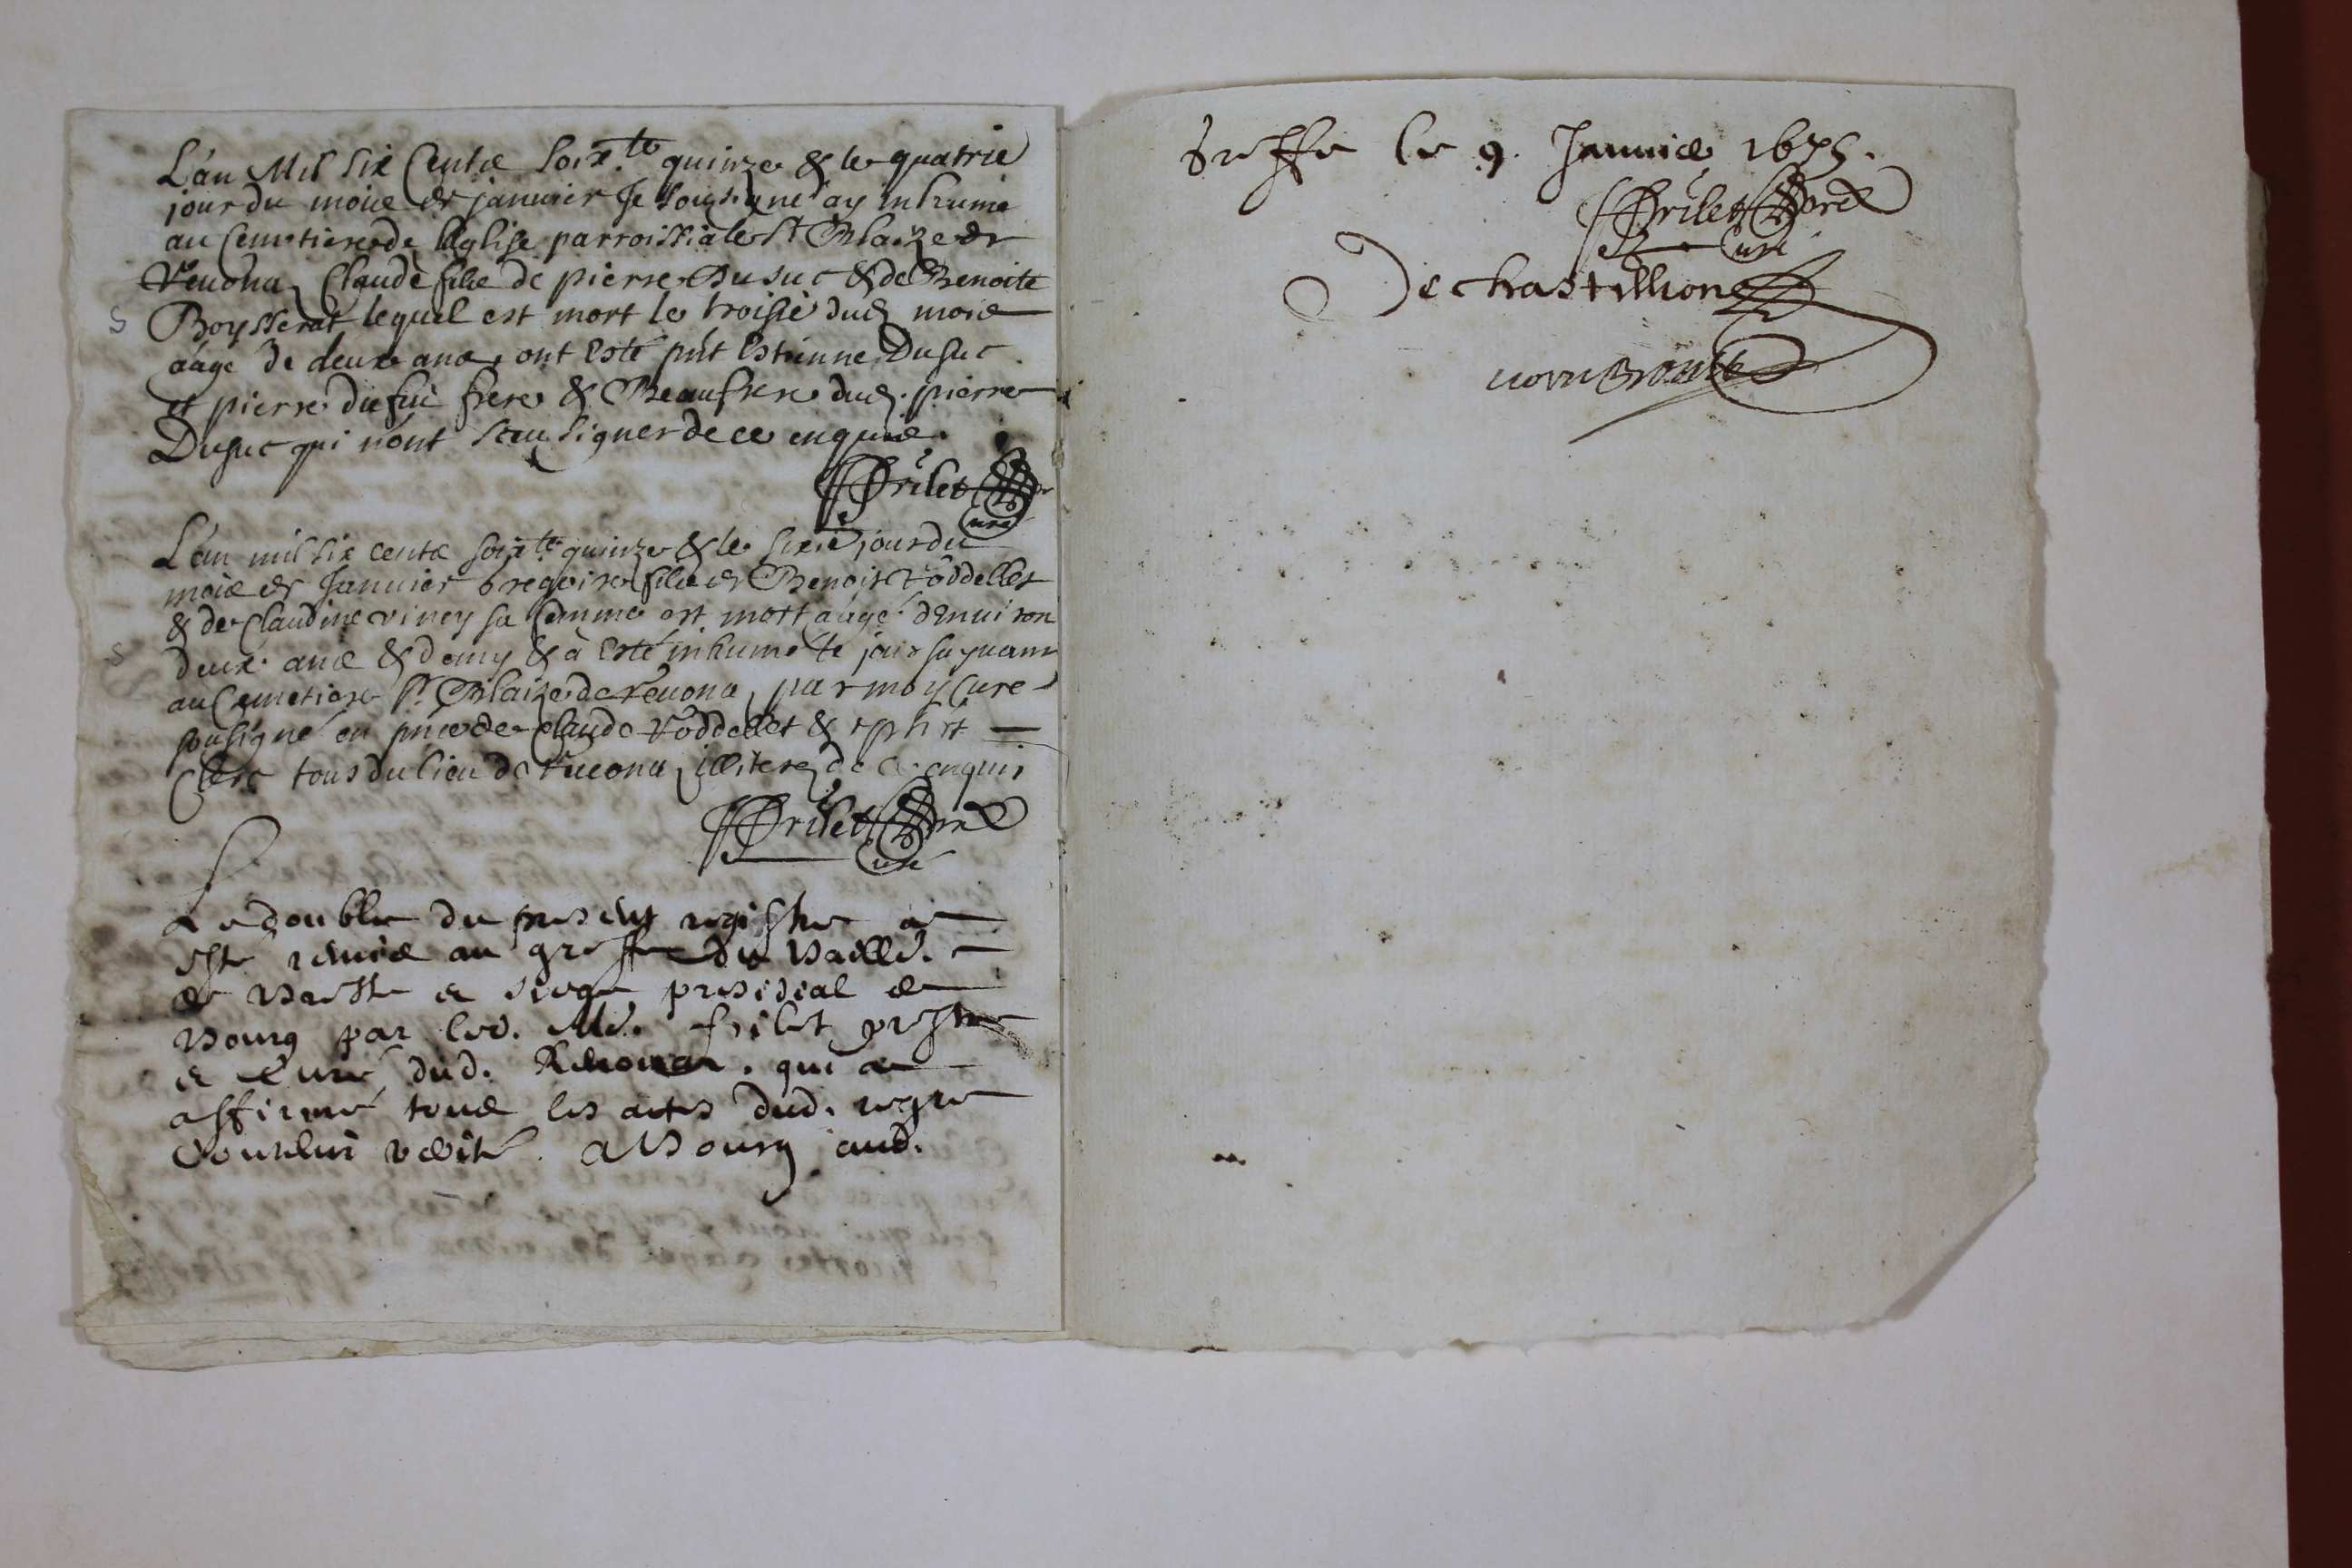 L'an Mil six Cents soix.te quinze & le quatrie
jour du mois de janvier Je soussigné ay inhumé
au Cemetiere de l'Eglise parroissiale St Blaize de
Revona, Claude fils de pierre Dusuc & de Benoite
Boysserat lequel est mort le troisié dud. mois
aagé de deux ans, ont esté pñt Estienne Dusuc
et pierre dusuc frere & Beaufrere dud. pierre
Dusuc qui n'ont sceu signer de ce enquis.
Frilet
curé
L'an mil six cents soixte quinze & le sixié jour du
mois de Janvier Gregoire fils de Benoist Roddellet
& de Claudine viney sa femme est mort aagé d'enuiron
deux ans & demy & à esté inhumé le jour suyuant
au Cemetiere St Blaize de Reuona, par moy Curé
sousigné en pñce de Claude Roddellet &
Clerc tous du lieu de Reuona, illiterez de ce enquis
Frilet
curé
Le double du present registre a
esté remis au greffe du Baill.
de Bresse & siege presidial de
Bourg par led. Me. frilet prestre
& Curé dud. Reuona. qui a
affirmé tous les actes dud. regre
Contenir verité. A Bourg aud.
Greffe le 9. Januier 1675.
Frilet
curé
De chastillion